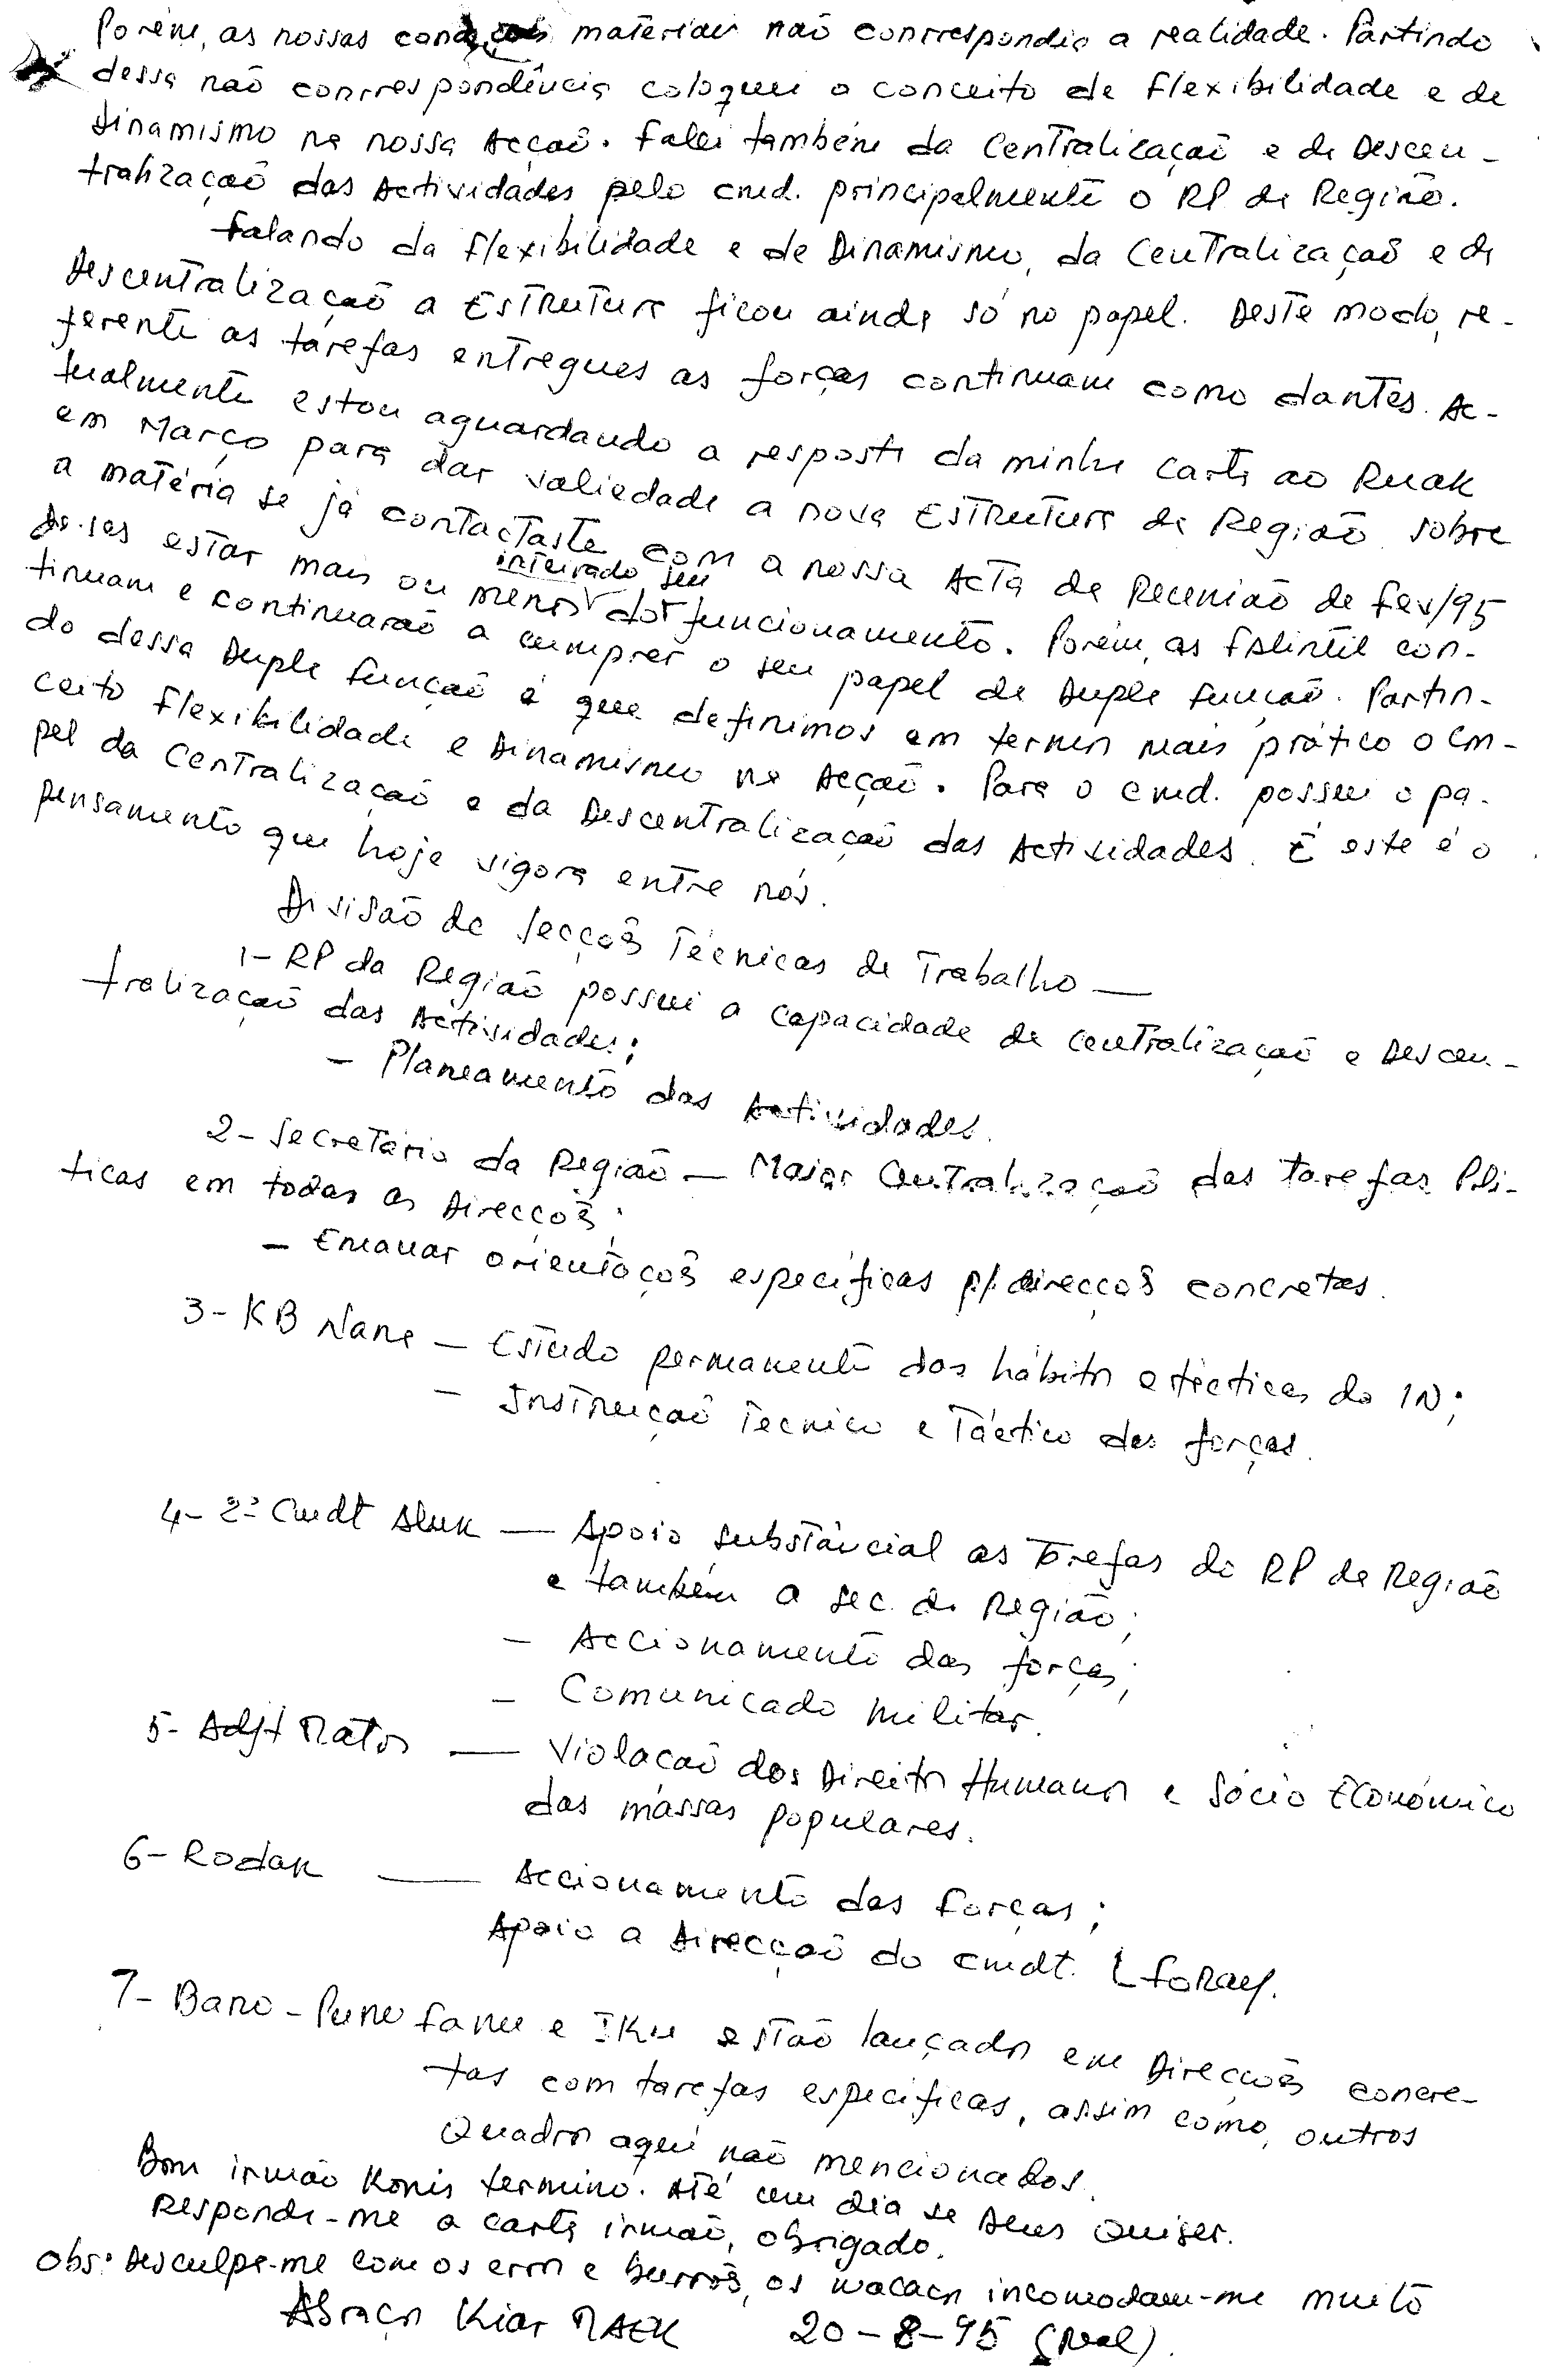 Porém, as nossas condições materiais naõ conrrespondia a realidade. Partindo
dessa naõ conrrespondência coloquei o conceito de flexibilidade e de
Dinamismo na nossa Acçaõ. Falei também da Centralizaçaõ e da Descen-
tralizaçaõ das Actividades pelo cmd. principalmente o RP da Regiaõ.
Falando da flexibilidade e de Dinamismo, da Centralizaçaõ e da
Descentralizaçaõ a Estrutura ficou ainda só no papel. Deste modo, re-
ferente as tarefas entregues as forças continuam como dantes. Ac-
tualmente estou aguardando a resposta da minha carta ao Ruak
em Março para dar valiedade a nova Estrutura da Regiaõ. Sobre
a matéria se já contactaste com a nossa Acta da Reuniaõ de Fev/95
deves estar mais ou menos inteirado do seu funcionamento. Porém, as Falintil con-
tinuam e continuaraõ a cumprir o seu papel de Dupla funçaõ. Partin-
do dessa Dupla funçaõ é que definimos em termos mais prático o con-
ceito flexibilidade e Dinamismo na Acçaõ. Para o cmd. possui o pa-
pel da Centralizaçaõ e da Descentralizaçaõ das Actividades. E este é o
pensamento que hoje vigora entre nós.
Divisaõ de Secçoẽs Técnicas de Trabalho —
1- RP da Regiaõ possui a capacidade de Centralizaçaõ e Descen-
tralizaçaõ das Actividades;
- Planeamento das Actividades.
2- Secretário da Regiaõ — Maior Centralizaçaõ das tarefas Polí-
ticas em todas as Direcçoẽs;
- Emanar orientaçoẽs específicas p/ direcçoẽs concretas.
3- KB Nana — Estudo permanente dos hábitos e tácticas do IN;
- Instruçaõ Técnico e Táctico das forças.
4- 2º Cmdt Aluk — Apoio substâncial as Tarefas do RP da Regiaõ
e também a sec. da Regiaõ;
- Accionamento das forças;
- Comunicado Militar.
5- Adjt Matos — Violaçaõ dos Direitos Humanos e Sócio Económico
das massas populares.
6- Rodak — Accionamento das Forças;
Apoio a Direcçaõ do cmdt. L Foray.
7- Bano - Puno Fanu e Iku estaõ lançados em Direcçoẽs concre-
tas com tarefas especificas, assim como, outros
Quadros aqui naõ mencionados.
Bom irmaõ Konis termino. Até um dia se Deus Quiser.
Responde-me a carta irmaõ, obrigado.
Obs: Desculpe-me com os erros e burroẽs, os macacos incomodam-me muito
Abraços Kiar MAEK 20-8-95 (Real).